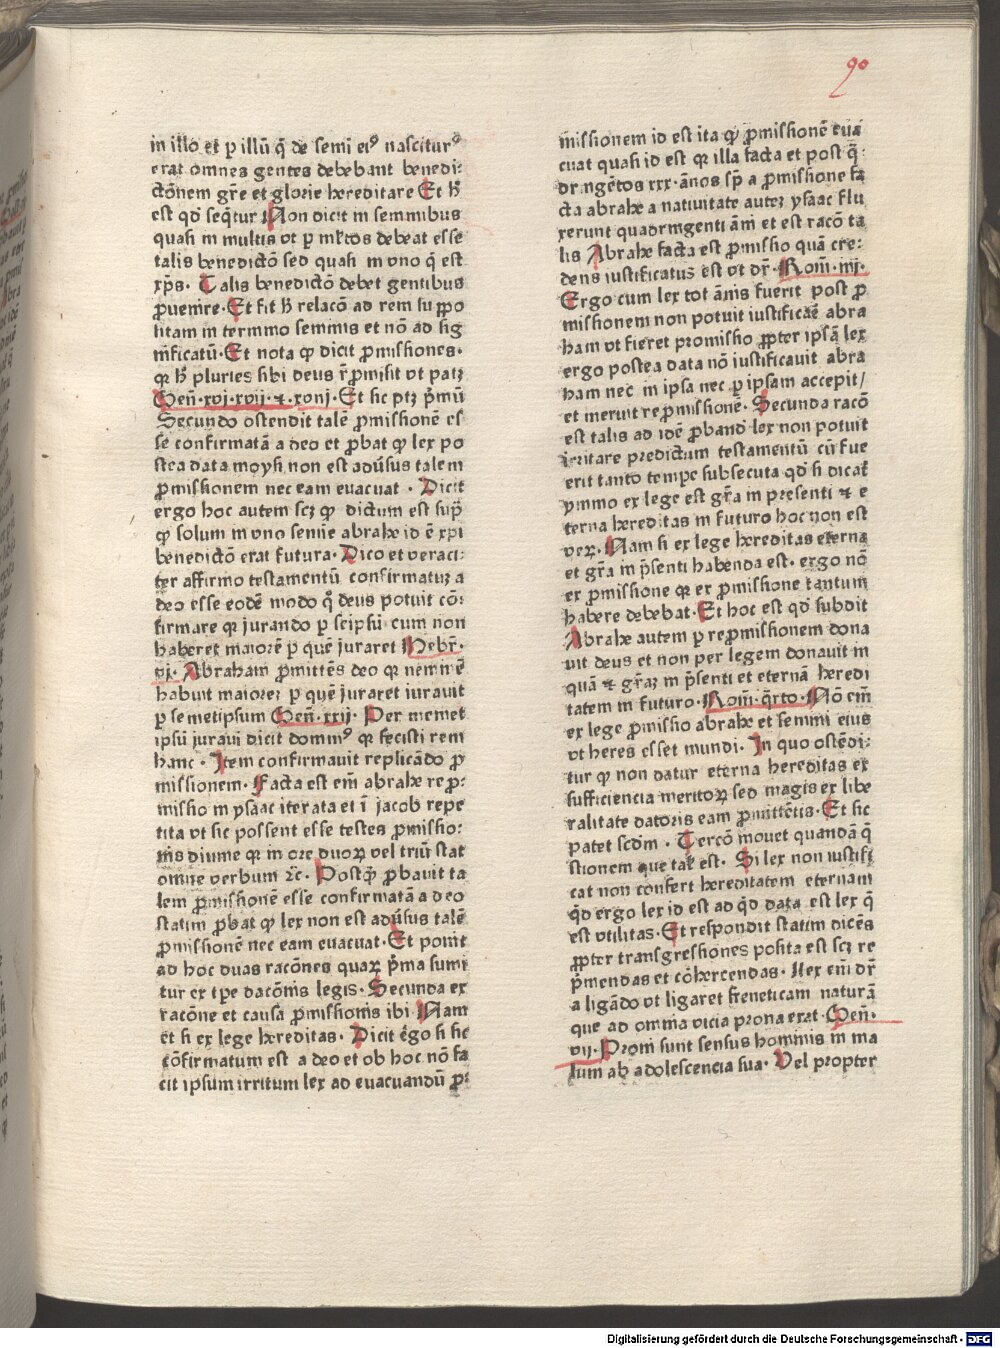 90
in illo et p illū q̄ de semi ei⁹ nascitur⁹
erat omnes gentes debebant benedi-
ctōnem gr̄e et glorie hereditare Et h̄
est qd̄ seq̄tur Non dicit in seminibus
quasi in multis vt p ml̄tos debeat esse
talis benedictō sed quasi in vno q̄ est
xp̄s. Talis benedictō debet gentibus
ꝓuenire. Et fit h̄ relacō ad rem suppo
sitam in termino seminis et nō ad sig
nificatū. Et nota ꝙ dicit ꝓmissiones.
qꝛ h̄ pluries sibi deus r̄ꝓmisit vt patꝫ
Gen̄. xvj. xvij. ⁊. xxnj. Et sic ptꝫ p̄mū
Secundo ostendit talē ꝓmissionē es
se confirmatā a deo et ꝓbat ꝙ lex po
stea data moysi non est adūsus talem
ꝓmissionem nec eam euacuat. Dicit
ergo hoc autem scꝫ ꝙ dictum est sup̄
ꝙ solum in vno semīe abrahe id ē xp̄i
benedictō erat futura. Dico et veraci-
ter affirmo testamentū confirmatuꝫ a
deo esse eodē modo q̄ deus potuit cō-
firmare qꝛ jurando p seipsū cum non
haberet maiorē p quē juraret Hebr̄.
vj. Abraham ꝓmittēs deo qꝛ neminē
habuit maioreꝫ p quē juraret iurauit
p semetipsum Gen̄. xxij. Per memet
ipsū juraui dicit domin⁹ qꝛ fecisti rem
hanc. Item confirmauit replicādo ꝓ
missionem. Facta est em̄ abrahe reꝓ-
missio in ysaac iterata et ī jacob repe
tita vt sic possent esse testes ꝓmissio-
nis diuine qꝛ in ore duoꝝ vel triū stat
omne verbum ⁊c. Postq̄ ꝓbauit ta
lem ꝓmissionē esse confirmatā a deo
statim ꝓbat ꝙ lex non est adūsus talē
ꝓmissionē nec eam euacuat. Et ponit
ad hoc duas racōnes quaꝝ p̄ma sumi
tur ex tp̄e dacōnis legis. Secunda ex
ratōne et causa ꝓmissionis ibi Nam
et si ex lege hereditas. Dicit ēgo si sic
cōfirmatum est a deo et ob hoc nō fa
cit ipsum irritum lex ad euacuandū ꝓ-
missionem id est ita ꝙ ꝓmissionē eua
cuat quasi id est qꝛ illa facta et post q̄-
dringētos xxx. ānos sp̄ a ꝓmissione fa
cta abrahe a natiuitate auteꝫ ysaac flu
xerunt quadringenti ām̄ et est racō ta
lis Abrahe facta est ꝓmissio quā cre-
dens iustificatus est vt dr̄. Rom̄. iiij.
Ergo cum lex tot ānis fuerit post ꝓ
missionem non potuit iustificāe abra
ham vt fieret promissio ꝓpter ipsā lex
ergo postea data nō iustificauit abra
ham nec in ipsa nec p ipsam accepit/
et meruit reꝓmissionē. Secunda racō
est talis ad idē ꝓband lex non potuit
irritare predictum testamentū cū fue
erit tanto tempe subsecuta qd̄ si dicat̄
ymmo ex lege est gr̄a in presenti ⁊ e
terna hereditas in futuro hoc non est
veꝝ. Nam si ex lege hereditas eterna
et gr̄a in p̄senti habenda est. ergo nō
ex ꝓmissione qꝛ ex ꝓmissione tantum
habere debebat. Et hoc est qd̄ subdit
Abrahe autem p reꝓmissionem dona
uit deus et non per legem donauit in
quā ⁊ gr̄aꝫ in p̄senti et eternā heredi
tatem in futuro. Rom̄. q̄rto. Nō em̄
ex lege ꝓmissio abrahe et semini eius
vt heres esset mundi. In quo ostēdi-
tur ꝙ non datur eterna hereditas ex
sufficiencia meritoꝝ sed magis ex libe
ralitate datoris eam ꝓmittētis. Et sic
patet scdm̄. Tercō mouet quandā q̄
stionem que tal̄ est. Si lex non iustifi
cat non confert hereditatem eternam
q̄d ergo lex id est ad q̄d data est lex q̄
est vtilitas. Et respondit statim dicēs
ꝓpter transgressiones posita est scꝫ re
p̄mendas et cōhercendas. Lex em̄ dr̄
a ligādo vt ligaret freneticam naturā
que ad omnia vicia prona erat. Gen̄.
vij. Proni sunt sensus hominis in ma
lum ab adolescencia sua. Vel propter
Digitalisierung gefördert durch die Deutsche Forschungsgemeinschaft - DFG